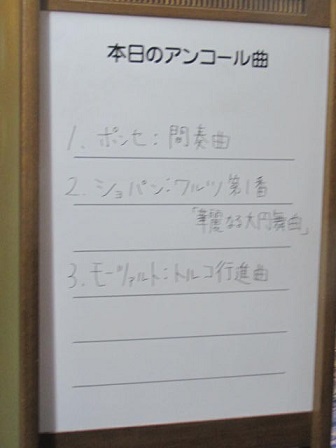 本日のアンコール曲
1. ポンセ：間奏曲
2. ショパン：ワルツ第1番
「華麗なる大円舞曲」
3. モーツァルト：トルコ行進曲